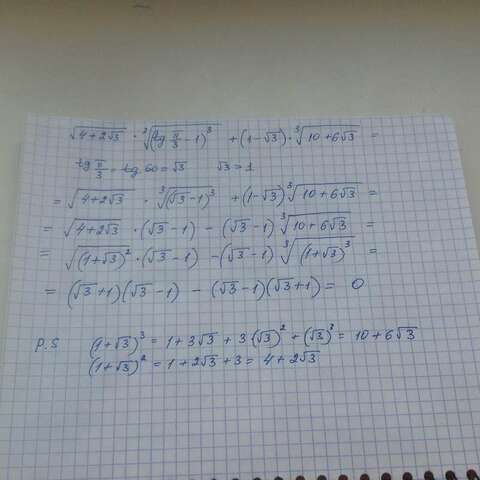 √(4+2√3) · ∛((tg π/3 − 1)³) + (1−√3) · ∛(10+6√3) =
tg π/3 = tg 60 = √3 √3 > 1
= √(4+2√3) · ∛((√3−1)³) + (1−√3) ∛(10+6√3) =
= √(4+2√3) · (√3−1) − (√3−1) ∛(10+6√3) =
= √((1+√3)²) · (√3−1) − (√3−1) ∛((1+√3)³) =
= (√3+1)(√3−1) − (√3−1)(√3+1) = 0
P.S (1+√3)³ = 1+3√3+3(√3)²+(√3)³ = 10+6√3
(1+√3)² = 1+2√3+3 = 4+2√3